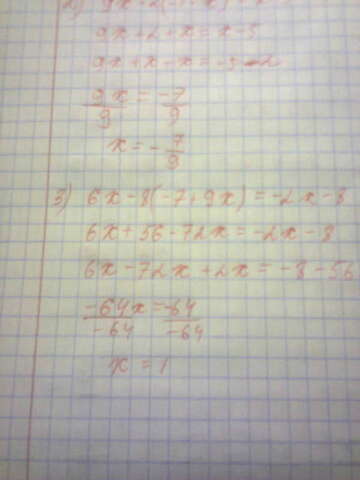 9x+2+x=x-5
9x+x-x=-5-2
9x/9=-7/9
x=-7/9
3) 6x-8(-7+9x)=-2x-8
6x+56-72x=-2x-8
6x-72x+2x=-8-56
-64x/-64=-64/-64
x=1